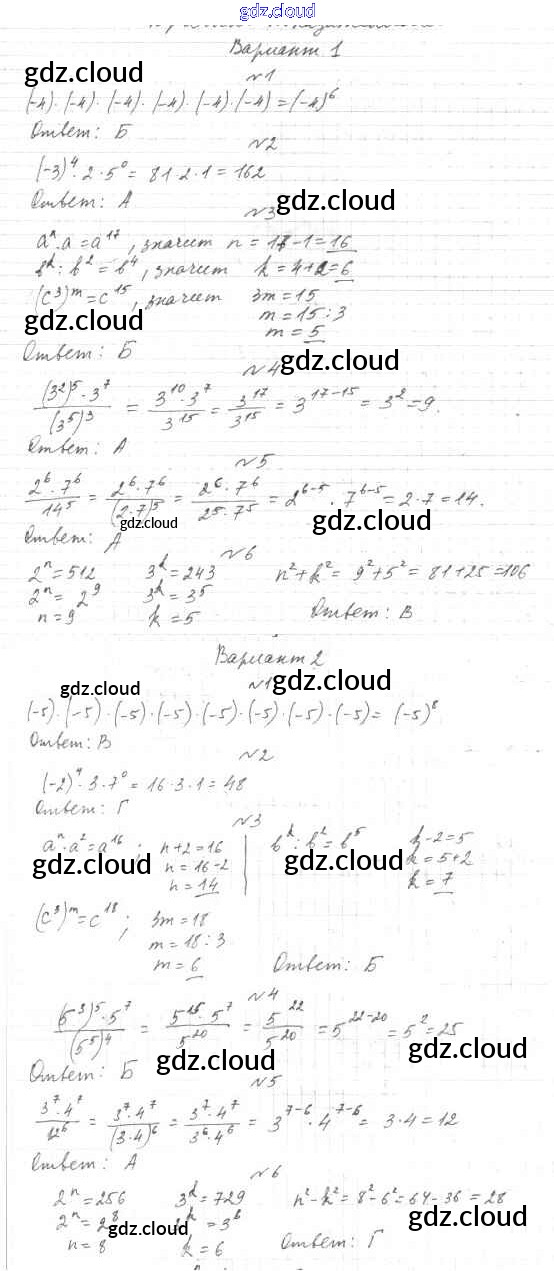 gdz.cloud
Вариант 1
gdz.cloud
№1
(-4)·(-4)·(-4)·(-4)·(-4)·(-4)=(-4)⁶
Ответ: Б
№2
(-3)⁴·2·5⁰=81·2·1=162
Ответ: А
gdz.cloud
№3
aⁿ·a=a¹⁷, значит n=17-1=16
bᵏ:b²=b⁴, значит k=4+2=6
(c³)ᵐ=c¹⁵, значит 3m=15
gdz.cloud
m=15:3
m=5
Ответ: Б
№4
gdz.cloud
(3²)⁵·3⁷/(3⁵)³=3¹⁰·3⁷/3¹⁵=3¹⁷/3¹⁵=3¹⁷⁻¹⁵=3²=9.
Ответ: А
№5
2⁶·7⁶/14⁵=2⁶·7⁶/(2·7)⁵=2⁶·7⁶/25·7⁵=2⁶⁻⁵·7⁶⁻⁵=2·7=14.
gdz.cloud gdz.cloud
Ответ: А
№6
2ⁿ=512 3ᵏ=243 n²+k²=9²+5²=81+25=106
2ⁿ=2⁹ 3ᵏ=3⁵
n=9 k=5 Ответ: В
Вариант 2
№1
gdz.cloud gdz.cloud
(-5)·(-5)·(-5)·(-5)·(-5)·(-5)·(-5)·(-5)=(-5)⁸
Ответ: В
№2
(-2)⁴·3·7⁰=16·3·1=48
Ответ: Г
№3
aⁿ·a²=a¹⁶; n+2=16 bᵏ:b²=b⁵ k-2=5
gdz.cloud n=16-2 gdz.cloud k=5+2
n=14 k=7
(c³)ᵐ=c¹⁸; 3m=18
m=18:3
m=6 Ответ: Б
№4
(5³)⁵·5⁷/(5⁵)⁴=5¹⁵·5⁷/5²⁰=5²²/5²⁰=5²²⁻²⁰=5²=25
gdz.cloud gdz.cloud
Ответ: Б
№5
3⁷·4⁷/12⁶=3⁷·4⁷/(3·4)⁶=3⁷·4⁷/3⁶·4⁶=3⁷⁻⁶·4⁷⁻⁶=3·4=12
Ответ: А
№6
2ⁿ=256 3ᵏ=729 n²-k²=8²-6²=64-36=28
2ⁿ=2⁸ =3⁶
gdz.cloud gdz.cloud
n=8 k=6 Ответ: Г